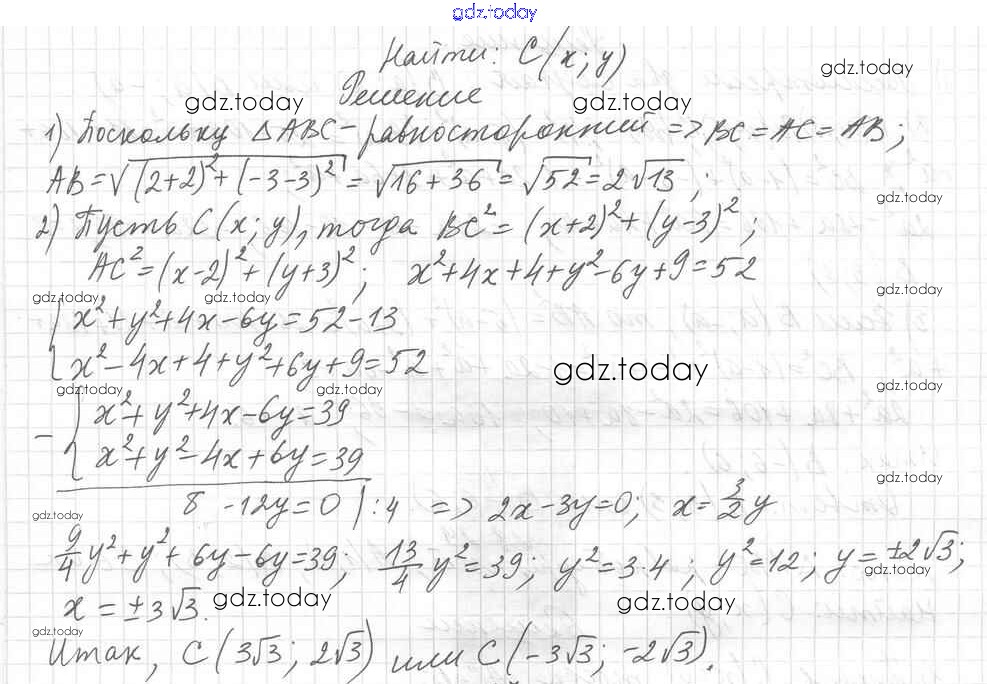 gdz.today
Найти: C(x; y)
gdz.today
gdz.today gdz.today
Решение
1) Поскольку △ABC - равносторонний => BC = AC = AB;
AB = √((2+2)² + (-3-3)²) = √(16+36) = √52 = 2√13;
gdz.today
2) Пусть C(x; y), тогда BC² = (x+2)² + (y-3)²;
AC² = (x-2)² + (y+3)²; x² + 4x + 4 + y² - 6y + 9 = 52
gdz.today gdz.today gdz.today
{ x² + y² + 4x - 6y = 52 - 13
x² - 4x + 4 + y² + 6y + 9 = 52
gdz.today
gdz.today gdz.today gdz.today
- { x² + y² + 4x - 6y = 39
x² + y² - 4x + 6y = 39
gdz.today
8 - 12y = 0 | : 4 => 2x - 3y = 0; x = 3/2 y
gdz.today
9/4 y² + y² + 6y - 6y = 39; 13/4 y² = 39; y² = 3·4; y² = 12; y = ±2√3;
gdz.today
x = ±3√3.
gdz.today gdz.today
gdz.today
Итак, C(3√3; 2√3) или C(-3√3; -2√3).